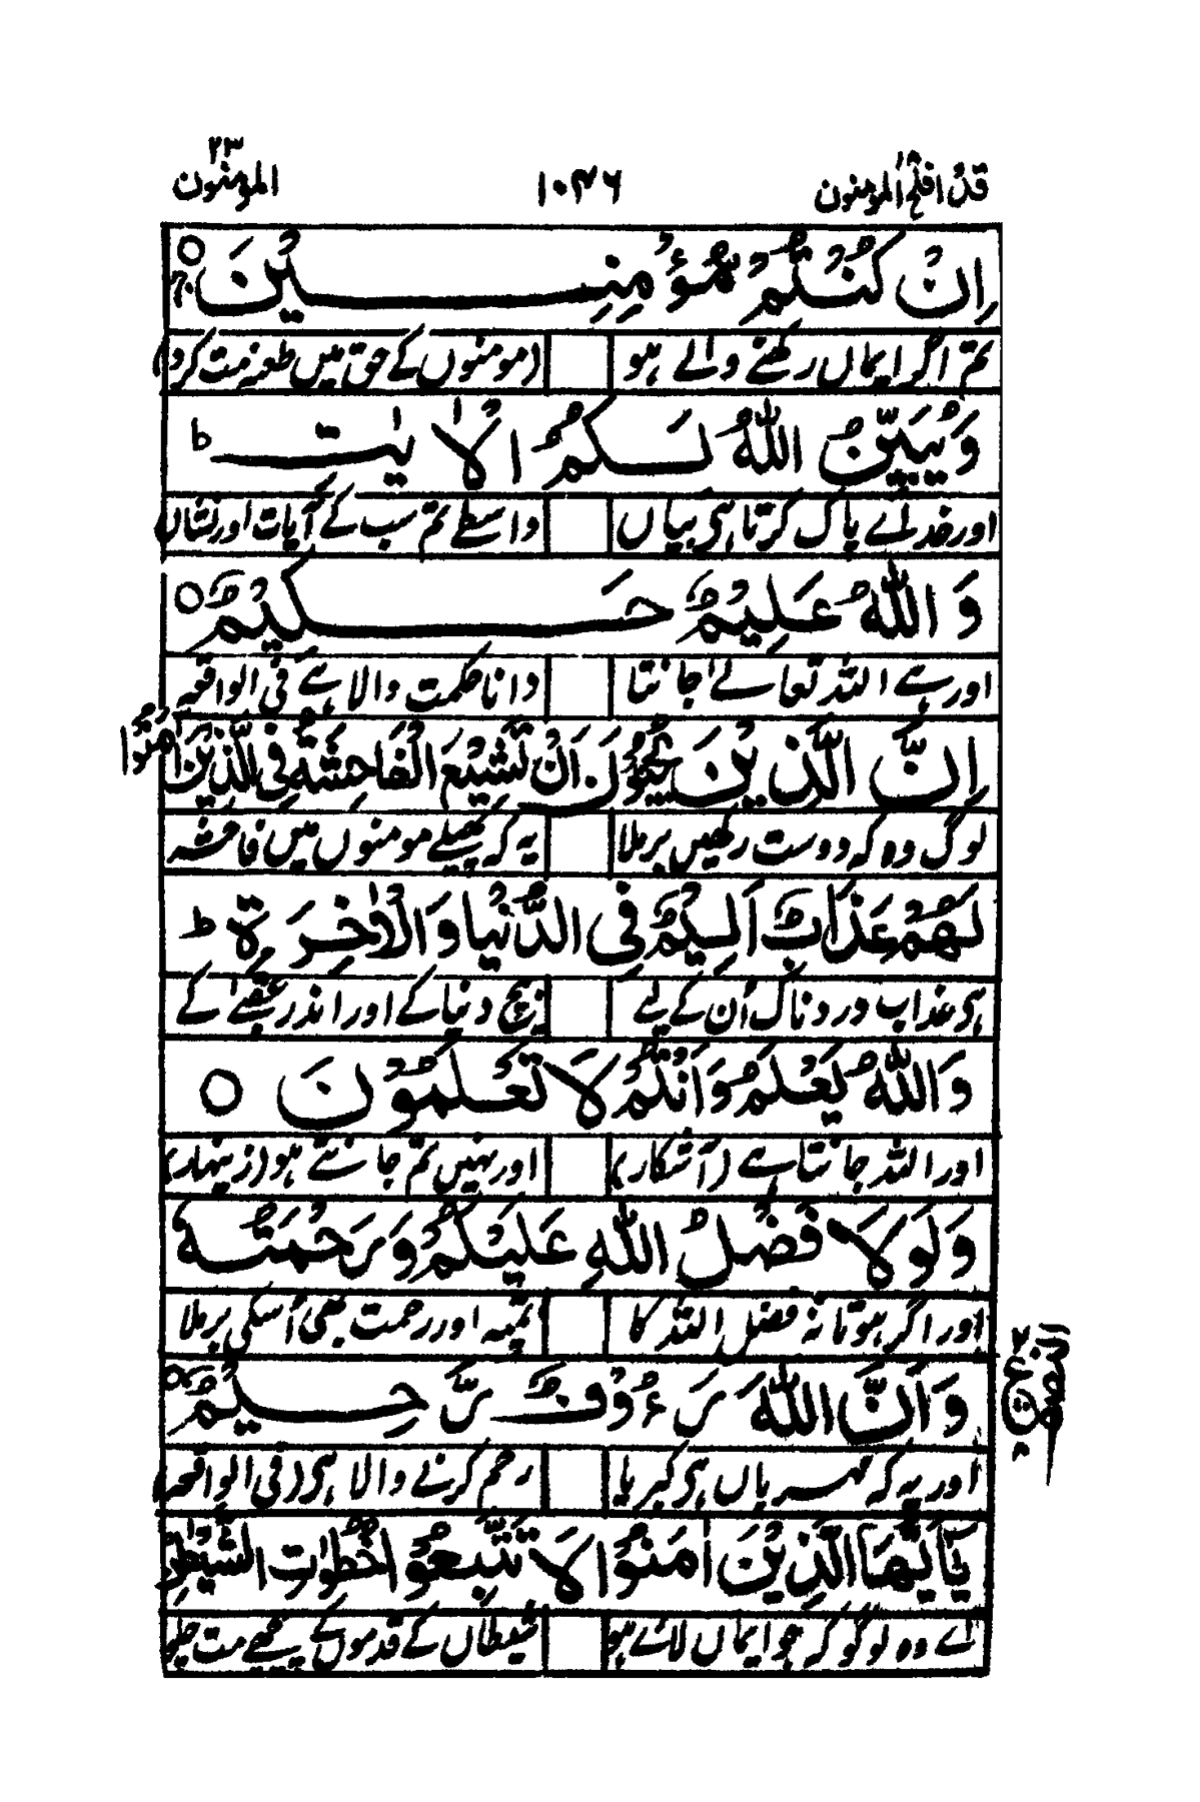 قد افلح ١٨ المؤمنون ١٠٣٦ المؤمنون ٢٣
اِنْ كُنْتُمْ مُّؤْمِنِيْنَ ○
تم اگر ایماں رکھنے والے ہو (مومنوں کے حق میں طعنہ مت کرو)
وَيُبَيِّنُ اللّٰهُ لَكُمُ الْاٰيٰتِ ط
اور خدائے پاک کرتا ہی بیاں واسطے تم سب کے آیات اور نشاں
وَاللّٰهُ عَلِيْمٌ حَكِيْمٌ ○
اور ہے اللہ تعالےٰ جانتا دانا حکمت والا ہے فی الواقعہ
اِنَّ الَّذِيْنَ يُحِبُّوْنَ اَنْ تَشِيْعَ الْفَاحِشَةُ فِى الَّذِيْنَ اٰمَنُوْا
لوگ وہ کہ دوست رکھیں برملا یہ کہ پھیلے مومنوں میں فاحشہ
لَهُمْ عَذَابٌ اَلِيْمٌ فِى الدُّنْيَا وَالْاٰخِرَةِ ط
ہی عذاب دردناک اُن کے لیے بیچ دنیا کے اور اندر عقبےٰ کے
وَاللّٰهُ يَعْلَمُ وَاَنْتُمْ لَا تَعْلَمُوْنَ ○
اور اللہ جانتا ہے (آشکار) اور نہیں تم جانتے ہو (زینہار)
وَلَوْلَا فَضْلُ اللّٰهِ عَلَيْكُمْ وَرَحْمَتُهٗ
اور اگر ہوتا نہ فضل اللہ کا تمپہ اور رحمت بھی اُسکی برملا
وَاَنَّ اللّٰهَ رَءُوْفٌ رَّحِيْمٌ ○
اور یہ کہ مہرباں ہی کبریا رحم کرنے والا ہی (فی الواقعہ)
يٰۤاَيُّهَا الَّذِيْنَ اٰمَنُوْا لَا تَتَّبِعُوْا خُطُوٰتِ الشَّيْطٰنِ
اے وہ لوگو کہ جو ایماں لائے ہو شیطاں کے قدموں کے پیچھے مت چلو